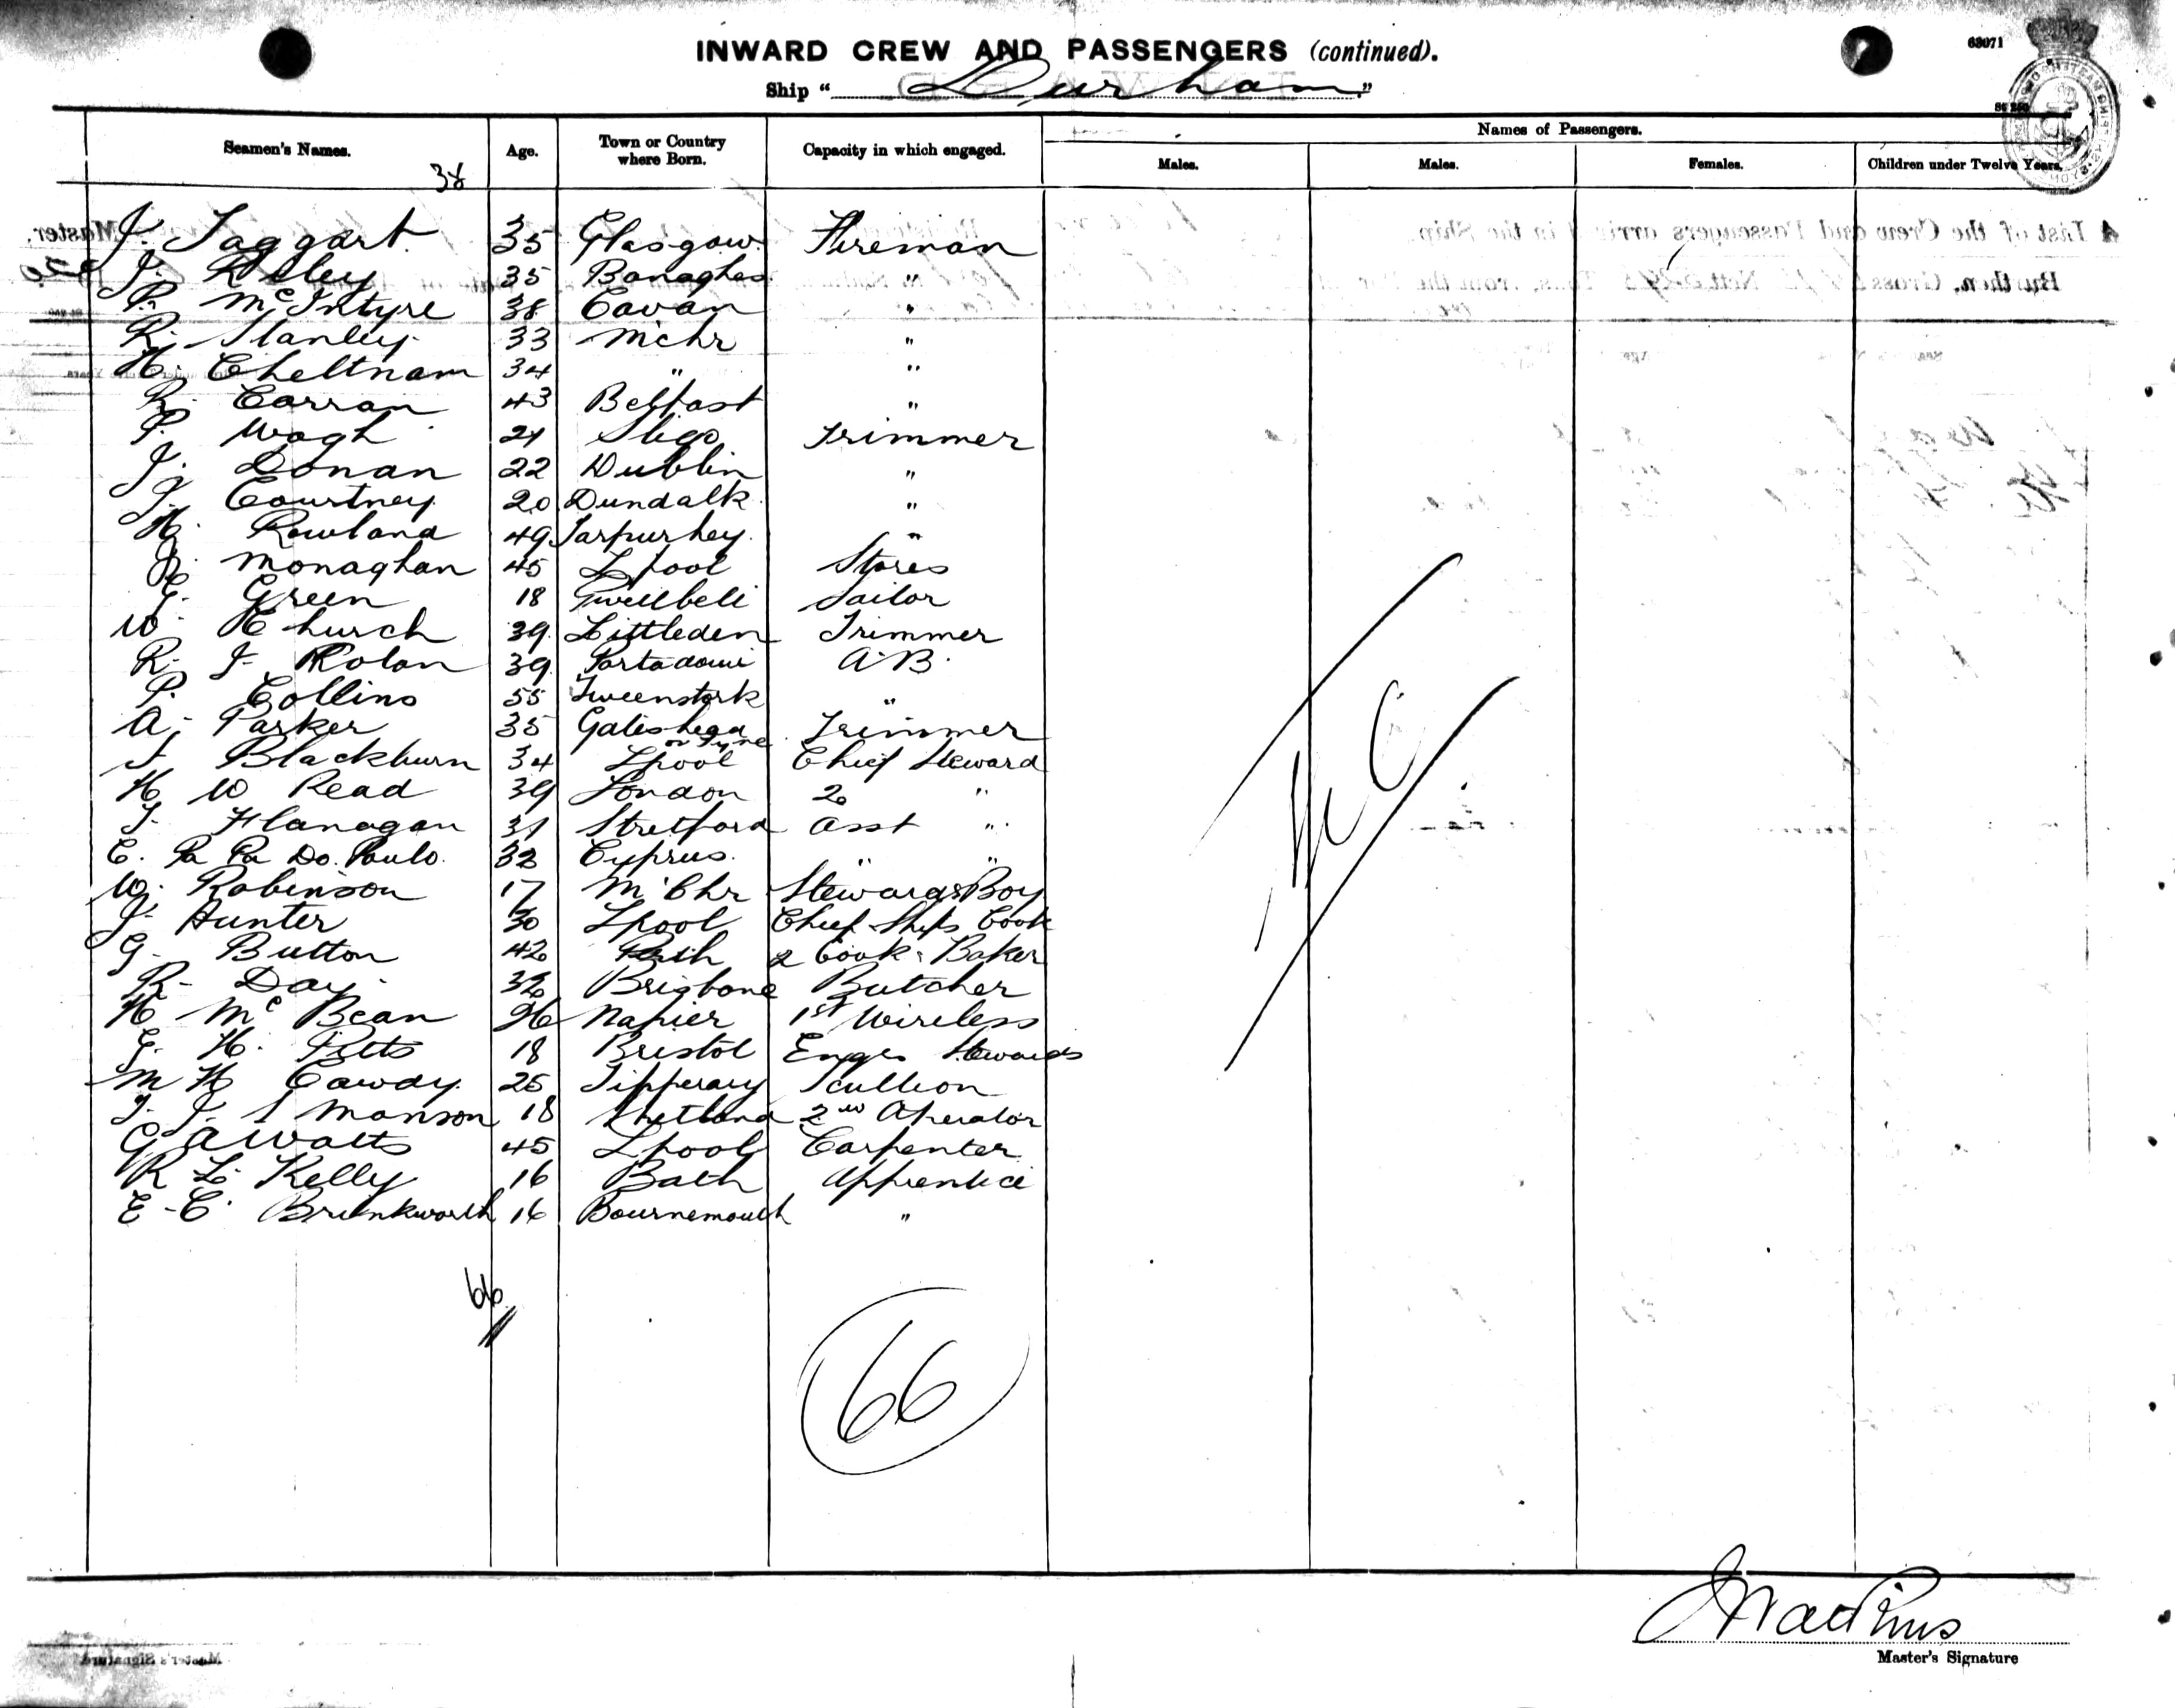 INWARD CREW AND PASSENGERS (continued).
63071
Ship " Durham "
Seamen's Names.
Age.
Town or Country where Born.
Capacity in which engaged.
Names of Passengers.
Males.
Males.
Females.
Children under Twelve Years.
38
J. Taggart 35 Glasgow Fireman
J. 35 Banagher "
P. McIntyre 38 Cavan "
R. Stanley 33 Mchr "
H. Cheltnam 34 " "
R. Carran 43 Belfast "
P. Wogh 21 Sligo Trimmer
J. Donan 22 Dublin "
J. Courtney 20 Dundalk "
H. Rowland 49 Tarpurhey "
J. Monaghan 45 Lpool Stores
Green 18 Sailor
W. Church 39 Littleden Trimmer
R. J. Rolan 39 Portadown A.B.
P. Collins 55 "
A. Parker 35 Gateshead on Tyne Trimmer
J Blackburn 34 Lpool Chief Steward
H W Read 39 London 2 "
J. Flanagan 31 Stretford Asst "
C. Pa Pa Do. Poulo. 32 Cyprus. " "
W. Robinson 17 M'Chr Stewards Boy
J. Hunter 30 Lpool Chief Ships Cook
G. Button 42 Perth 2 Cook & Baker
R. Day 32 Brisbane Butcher
H McBean 26 Napier 1st Wireless
H. Pitts 18 Bristol Engrs Stewards
M H Cawdy 25 Tipperary Scullion
T. J. S Manson 18 Shetland 2nd Operator
G A Watts 45 Lpool Carpenter
R L Kelly 16 Bath Apprentice
E. C. Brinkworth 16 Bournemouth "
66
66
Master's Signature